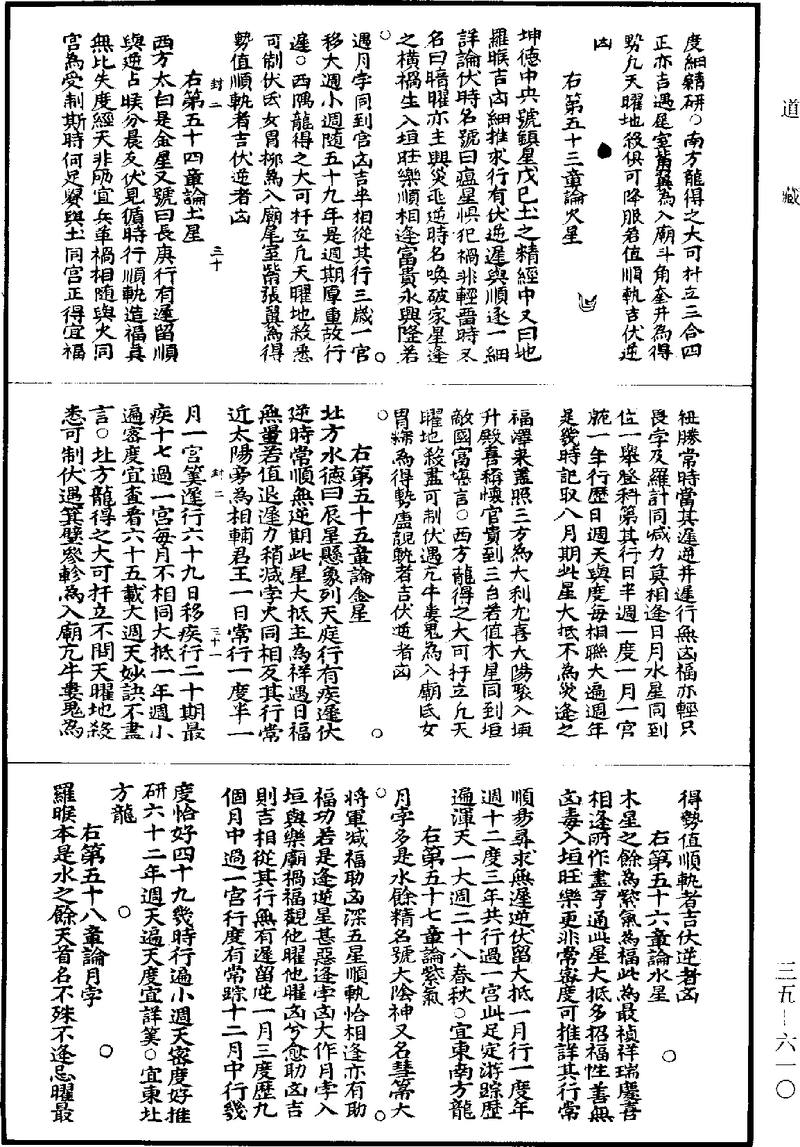 道藏
三五—六一〇
度細精研○南方龍得之大可扦立三合四
正亦吉遇尾室觜翼為入廟斗角奎井為得
勢九天曜地殺俱可降服若值順軌吉伏逆
凶
右第五十三章論火星
坤德中央號鎮星戊巳土之精經中又曰地
羅睺吉凶細推求行有伏逆遲與順逐一細
詳論伏時名號曰瘟星惧犯禍非輕畱時又
名曰暗曜亦主興災乖逆時名喚破家星逢
之橫禍生入垣旺樂順相逢富貴永興隆若
遇月孛同到宮凶吉半相從其行三歲一宮
移大週小週隨五十九年是週期厚重故行
遲○西隅龍得之大可扦立凡天曜地殺悉
可制伏氐女胃柳為入廟尾室觜張翼為得
勢值順軌者吉伏逆者凶
封二
三十
右第五十四章論土星
西方太白是金星又號曰長庚行有遲留順
與逆占睺分晨夂伏見循時行順軌造福真
無比失度經天非所宜兵革禍相隨與火同
宮為受制斯時何足寮與土同宮正得宜福
祉勝常時當其遲逆并遲行無凶福亦輕只
畏孛及羅計同減力莫相逢日月水星同到
位一舉登科第其行日半週一度一月一宮
就一年行歷日週天與度每相聯大遍週年
是幾時記取八月期此星大抵不為災逢之
福澤來盡照三方為大利尤喜太陽聚入垣
升殿喜稱懷官貴到三台若值木星同到垣
敵國富堪言○西方龍得之大可扦立凡天
曜地殺盡可制伏遇亢牛婁鬼為入廟氐女
胃柳為得勢虛覬軌者吉伏逆者凶
右第五十五章論金星
北方水德曰辰星懸象列天庭行有疾遲伏
逆時常順無逆期此星大抵主為祥遇日福
無量若值退遲力稍減孛火同相反其行常
近太陽旁為相輔君王一日常行一度半一
封二
三十一
月一宮筭遲行六十九日移疾行二十期最
疾十七過一宮每月不相同大抵一年週小
遍密度宜查看六十五載大週天妙訣不盡
言○北方龍得之大可扦立不問天曜地殺
悉可制伏遇箕壁參軫為入廟亢牛婁鬼為
得勢值順軌者吉伏逆者凶
右第五十六章論水星
木星之餘為紫氣為福此為最禎祥瑞慶喜
相逢所作盡亨通此星大抵多招福性善無
凶毒入垣旺樂更非常密度可推詳其行常
順易尋求無遲逆伏留大抵一月行一度年
週十二度三年共行過一宮此足定游踪歷
遍渾天一大週二十八春秋○宜東南方龍
右第五十七章論紫氣
月孛多是水餘精名號大陰神又名彗箒大
將軍減福助凶深五星順軌恰相逢亦有助
福功若是逢逆星甚惡逢孛凶大作月孛入
垣與樂廟禍福觀他曜他曜凶兮愈助凶吉
則吉相從其行無有遲留逆一月三度歷九
個月中過一宮行度有常踪十二月中行幾
度恰好四十九幾時行遍小週天密度好推
研六十二年週天遍天度宜詳筭○宜東北
方龍
右第五十八章論月孛
羅睺本是水之餘天首名不殊不逢忌曜最